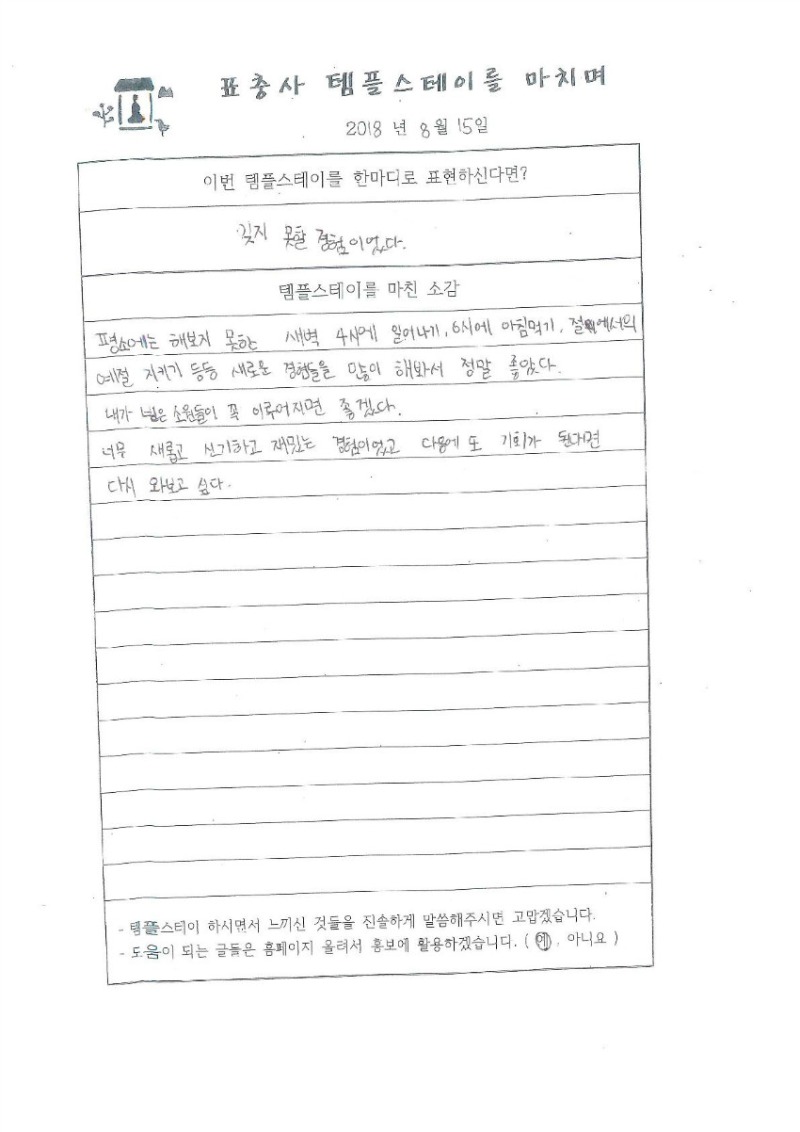 표충사 템플스테이를 마치며
2018 년 8월 15일
이번 템플스테이를 한마디로 표현하신다면?
잊지 못할 경험이었다.
템플스테이를 마친 소감
평소에는 해보지 못한 새벽 4시에 일어나기, 6시에 아침먹기, 절에서의
예절 지키기 등등 새로운 경험들을 많이 해봐서 정말 좋았다.
내가 빌은 소원들이 꼭 이루어지면 좋겠다.
너무 새롭고 신기하고 재밌는 경험이었고 다음에 또 기회가 된다면
다시 와보고 싶다.
- 템플스테이 하시면서 느끼신 것들을 진솔하게 말씀해주시면 고맙겠습니다.
- 도움이 되는 글들은 홈페이지 올려서 홍보에 활용하겠습니다. ( 예, 아니요 )